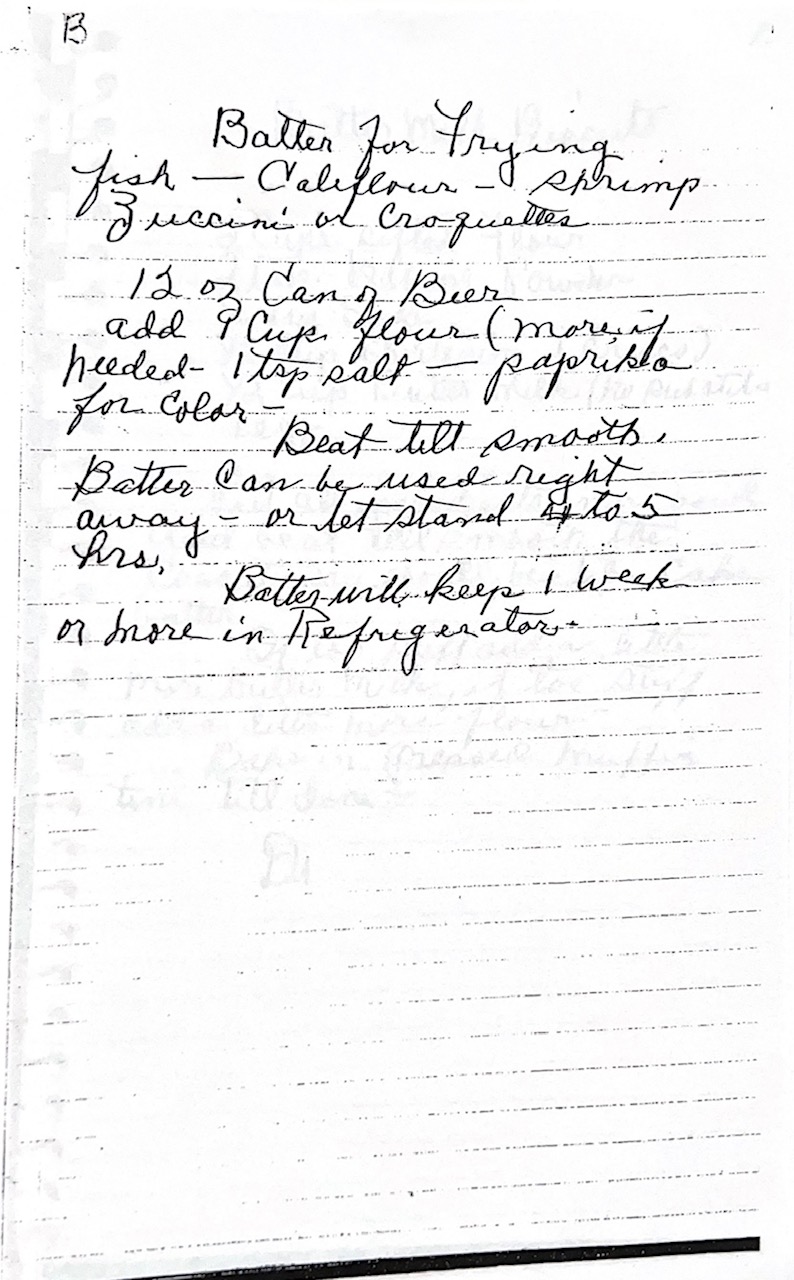 B
Batter for Frying
fish — Califlour - shrimp
Zuccini or Croquettes
12 oz Can of Beer
add 1 Cup flour (more if
needed - 1 tsp salt — paprika
for Color -
Beat till smooth.
Batter Can be used right
away - or let stand 4 to 5
hrs.
Batter will keep 1 week
or more in Refrigerator -